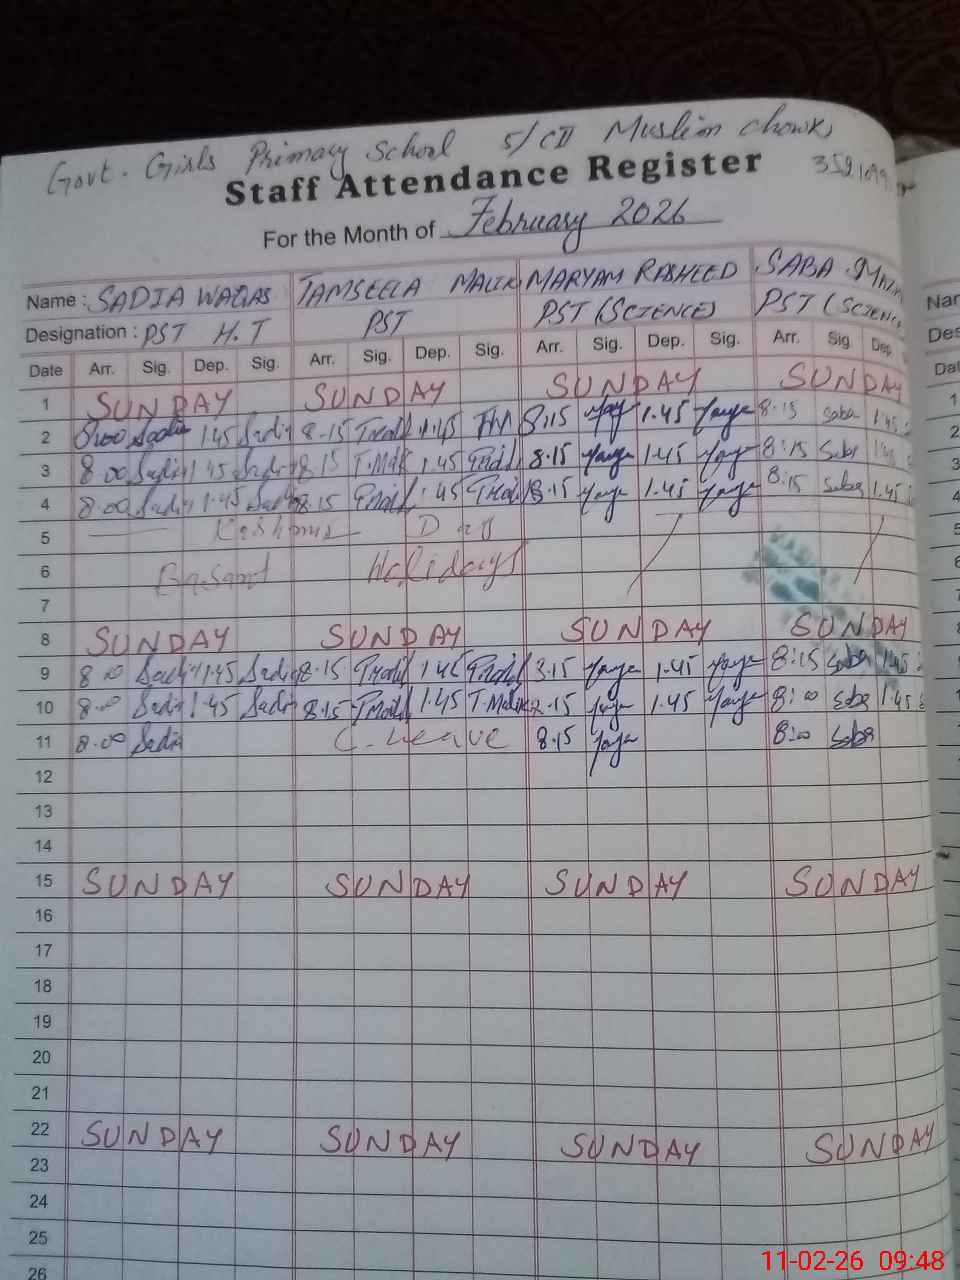 Govt. Girls Primary School 5/CD Muslim Chowk,
Staff Attendance Register
For the Month of February 2026
Name: SADIA WAQAS TAMSEELA MALIK MARYAM RASHEED SABA
Designation: PST H.T PST PST (SCIENCE) PST (SCIENCE
Date Arr. Sig. Dep. Sig. Arr. Sig. Dep. Sig. Arr. Sig. Dep. Sig. Arr. Sig Dep.
1 SUNDAY SUNDAY SUNDAY SUNDAY
2 8:00 Sadia 1.45 Sadia 8.15 1.45 TM 8:15 1.45 8.15 Saba 1.45
3 8.00 Sadia 1.45 Sadia 8.15 T.Malik 1.45 8.15 1.45 8:15 Saba 1.45
4 8.00 Sadia 1.45 Sadia 8.15 1.45 8.15 1.45 8:15 Saba 1.45
5 Kashmir Day
6 Basant Holidays
7
8 SUNDAY SUNDAY SUNDAY SUNDAY
9 8.00 Sadia 1.45 Sadia 8.15 1.45 8.15 1.45 8:15 Saba 1.45
10 8.00 Sadia 1.45 Sadia 8.15 1.45 T.Malik 8.15 1.45 8:00 Saba 1.45
11 8.00 Sadia C.Leave 8.15 8:00 Saba
12
13
14
15 SUNDAY SUNDAY SUNDAY SUNDAY
16
17
18
19
20
21
22 SUNDAY SUNDAY SUNDAY SUNDAY
23
24
25
26
11-02-26 09:48